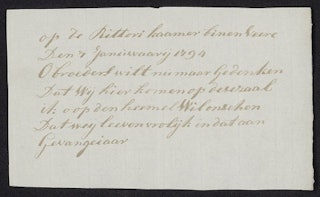 op de Rittori kaamer binen Eeere
Den 1 Januwaary 1794
O broeders wilt nu maar Gedenken
Dat Wy hier komen op dese zaal
ik oop den hemel Wil
Dat wey leeven vrolijk in dat aan
Gevangejaar